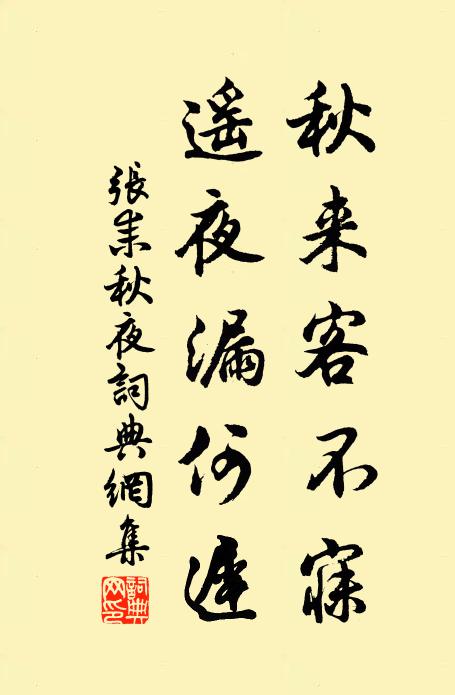 秋来客不寐
遥夜漏何遲
張耒秋夜詞典網集
詞典网印